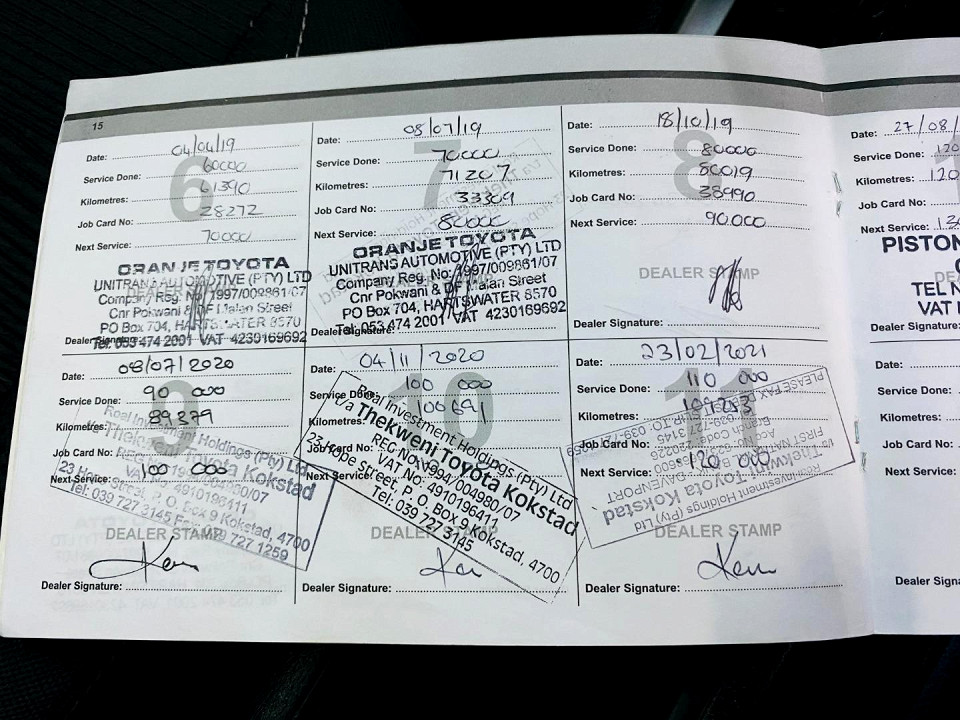 15
6
Date: 04/04/19
Service Done: 60000
Kilometres: 61390
Job Card No: 28272
Next Service: 70000
ORANJE TOYOTA
UNITRANS AUTOMOTIVE (PTY) LTD
Company Reg. No: 1997/009861/07
Cnr Pokwani & DF Malan Street
PO Box 704, HARTSWATER 8570
Tel: 053 474 2001 VAT 4230169692
7
Date: 08/07/19
Service Done: 70000
Kilometres: 71207
Job Card No: 33309
Next Service: 80000
ORANJE TOYOTA
UNITRANS AUTOMOTIVE (PTY) LTD
Company Reg. No: 1997/009861/07
Cnr Pokwani & DF Malan Street
PO Box 704, HARTSWATER 8570
Tel: 053 474 2001 VAT 4230169692
Dealer Signature:
8
Date: 18/10/19
Service Done: 80000
Kilometres: 80019
Job Card No: 38990
Next Service: 90000
DEALER STAMP
Dealer Signature:
27/08/
Date:
Service Done: 120
Kilometres: 120
Job Card No:
Next Service: 13
PISTON
TEL N
VAT
Dealer Signature:
9
Date: 08/07/2020
Service Done: 90 000
Kilometres: 89379
Job Card No:
Next Service: 100 000
Real Investment Holdings (Pty) Ltd
Toyota Kokstad
4910196411
23 Hope Street, P.O. Box 9 Kokstad, 4700
Tel: 039 727 3145 Fax: 039 727 1259
DEALER STAMP
Dealer Signature:
10
Date: 04/11/2020
Service Done: 100 000
Kilometres: 100691
Job Card No:
Next Service:
Real Investment Holdings (Pty) Ltd
t/a Thekweni Toyota Kokstad
REG No: 1994/004980/07
VAT No: 4910196411
23 Hope street, P. O. Box 9 Kokstad, 4700
Tel: 039 727 3145
Dealer Signature:
11
Date: 23/02/2021
Service Done: 110 000
Kilometres: 109253
Job Card No:
Next Service: 120 000
PLEASE FAX
Real Investment Holdings (Pty) Ltd
Thekweni Toyota Kokstad
DEALER STAMP
Dealer Signature:
Date:
Service Done:
Kilometres:
Job Card No:
Next Service:
Dealer Sign